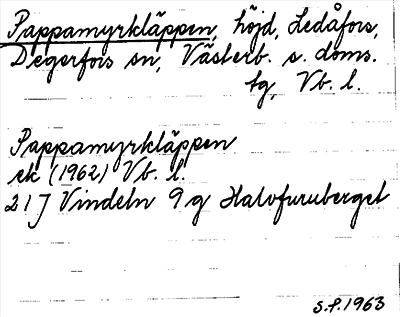 Pappamyrkläppen, höjd, Ledåfors,
Degerfors sn, Västerb. s. doms.
tg, Vb. l.
Pappamyrkläppen
ek (1962) Vb. l.
21J Vindeln 9g Halvfuruberget
S.P. 1963